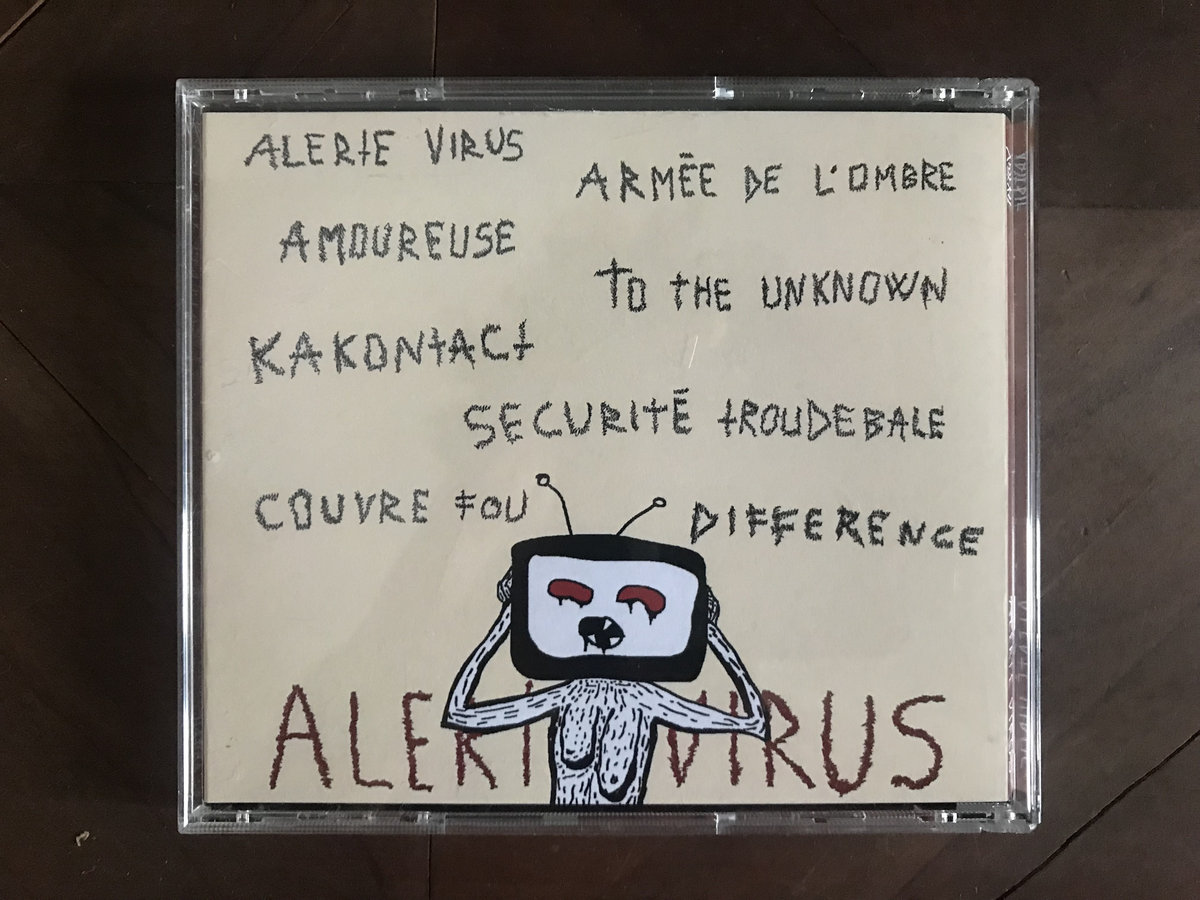 ALERTE VIRUS
ARMÉE DE L'OMBRE
AMOUREUSE
TO THE UNKNOWN
KAKONTACT
SECURITÉ TROUDEBALE
COUVRE FOU
DIFFERENCE
ALERT VIRUS